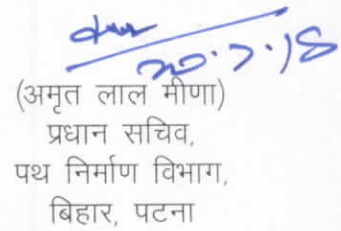 20.7.18
(अमृत लाल मीणा)
प्रधान सचिव,
पथ निर्माण विभाग,
बिहार, पटना